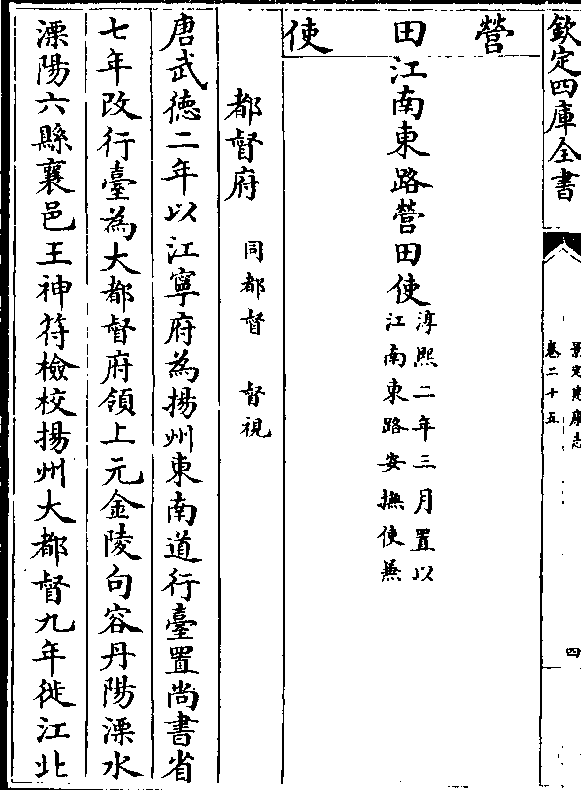 欽定四庫全書
景定建康志
卷二十五
四
營田使
江南東路營田使
淳熙二年三月置以
江南東路安撫使兼
都督府 同都督 督視
唐武德二年以江寧府為揚州東南道行臺置尚書省
七年改行臺為大都督府領上元金陵句容丹陽溧水
溧陽六縣襄邑王神符檢校揚州大都督九年徙江北